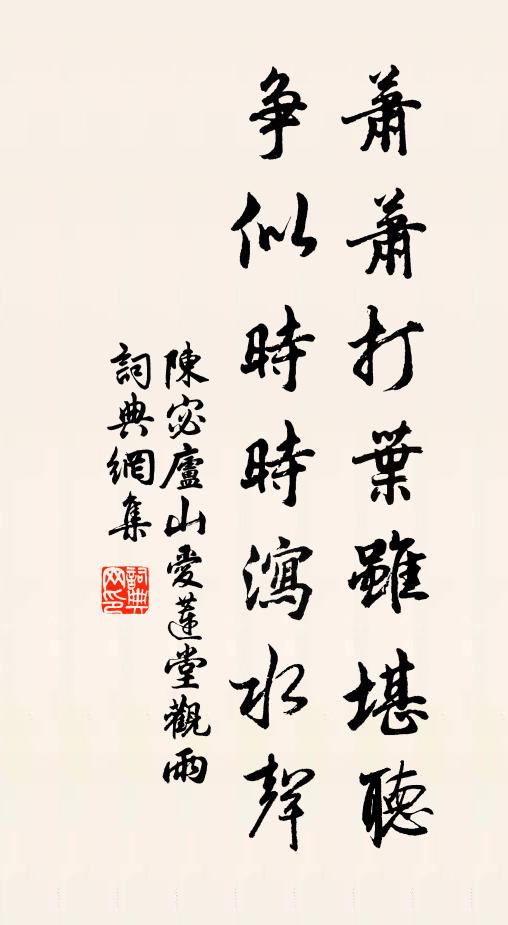 蕭蕭打葉雖堪聽
争似時時瀉水聲
陳宓廬山愛蓮堂觀雨
詞典網集
詞典网印